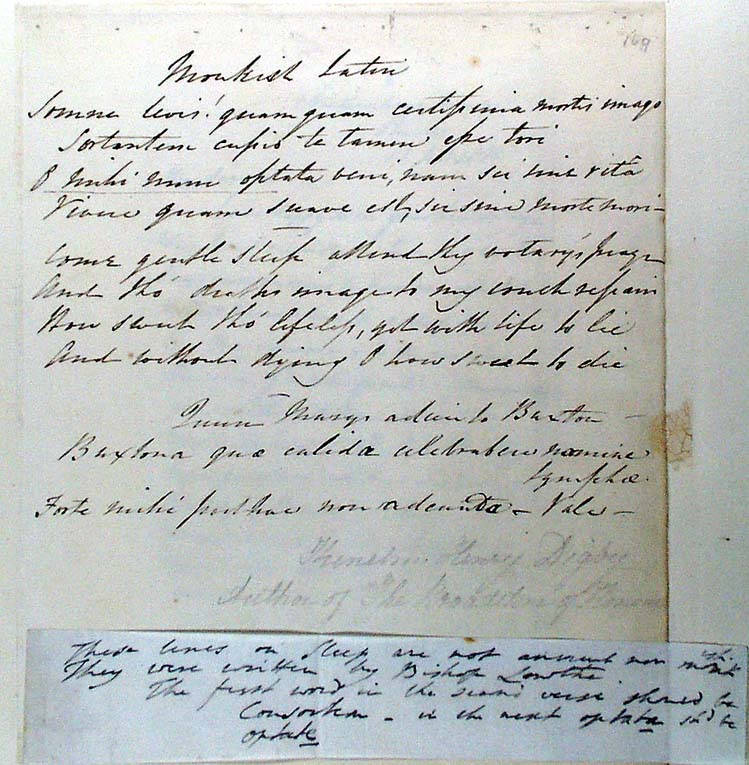 169
Monkish Latin
Somne levis! quamquam certissima mortis imago
Sortantem cupio te tamen esse tori
O mihi mum optata veni, nam sic sine vitâ
Vivere quam suave est, sic sine morte mori -
Come gentle sleep attend thy votary's prayr
And tho' deaths image to my couch repair
How sweet tho' lifeless, yet with life to lie
And without dying O how sweet to die
Queen Marys adieu to Buxton -
Buxtona quæ calidæ celebrabere nomine
Lymphæ.
Forte mihi posthac non adeunda - Vale -
Kenelm Henry Digby
Author of The Broadstone of Honour
These lines on Sleep are not ancient nor
They were written by Bishop Lowthe
The first word in the second verse should be
Consortem - in the next optata shd be
optate